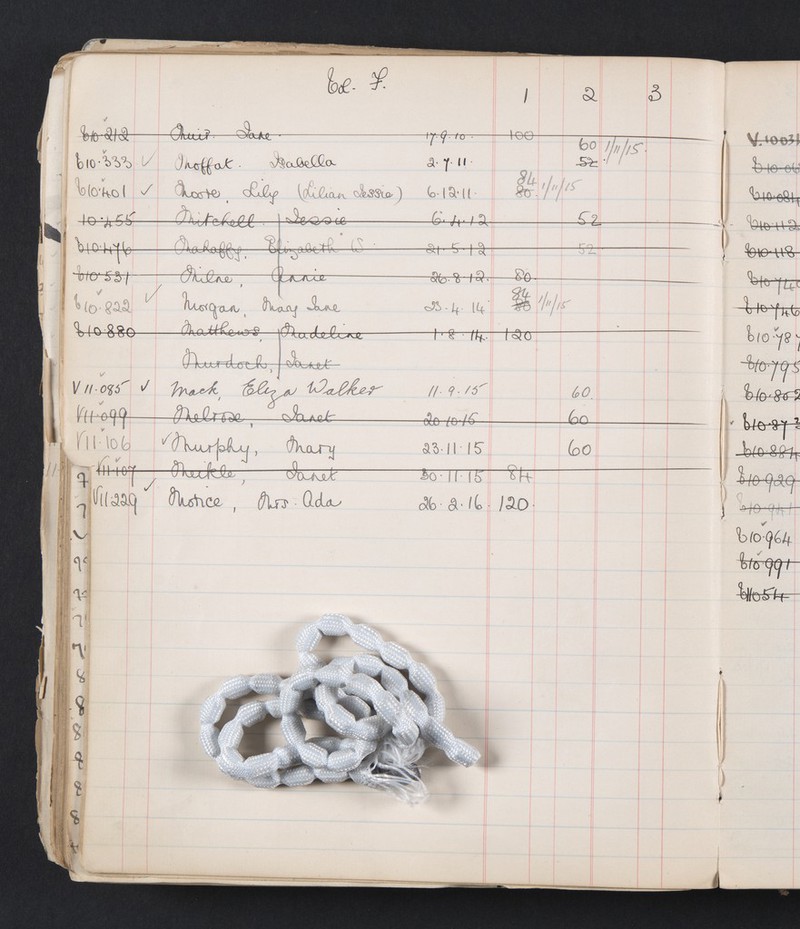 Ed. F.
1 2 3
E10·212 Muir. Jane. 17·9·10. 100
60 1/11/15.
E10·333 ✓ Moffat. Isabella 2·7·11. 52
84
E10·401 ✓ Moore, Lily (Lilian Jessie) 6·12·11. 80 1/11/15
10·455 Mitchell. Jessie 6·4·12 52
E10·476 Mahaffy, Elizabeth W. 21·5·12 52
E10·531 Milne, Annie 26·8·12. 80.
84
E10·822 ✓ Morgan, Mary Jane 23·4·14 80 1/11/15
E10·880 Matthews, Madeline 1·8·14. 120
Murdoch, Janet
V11·085 ✓ Mack, Eliza Walker 11·9·15 60.
V11·099 Melrose, Janet 20·10·15 60
V11·106 ✓ Murphy, Mary 23·11·15 60
V11·107 Meikle, Janet 30·11·15 84
V11·229 ✓ Motice, Mrs. Ada 26·2·16 120.
V.1003
E10·08
E10·112
E10·118
E10·74
E10·746
E10·78
E10·795
E10·802
E10·87
E10·884
E10·929
E10·941
E10·964
E10·991
E11054